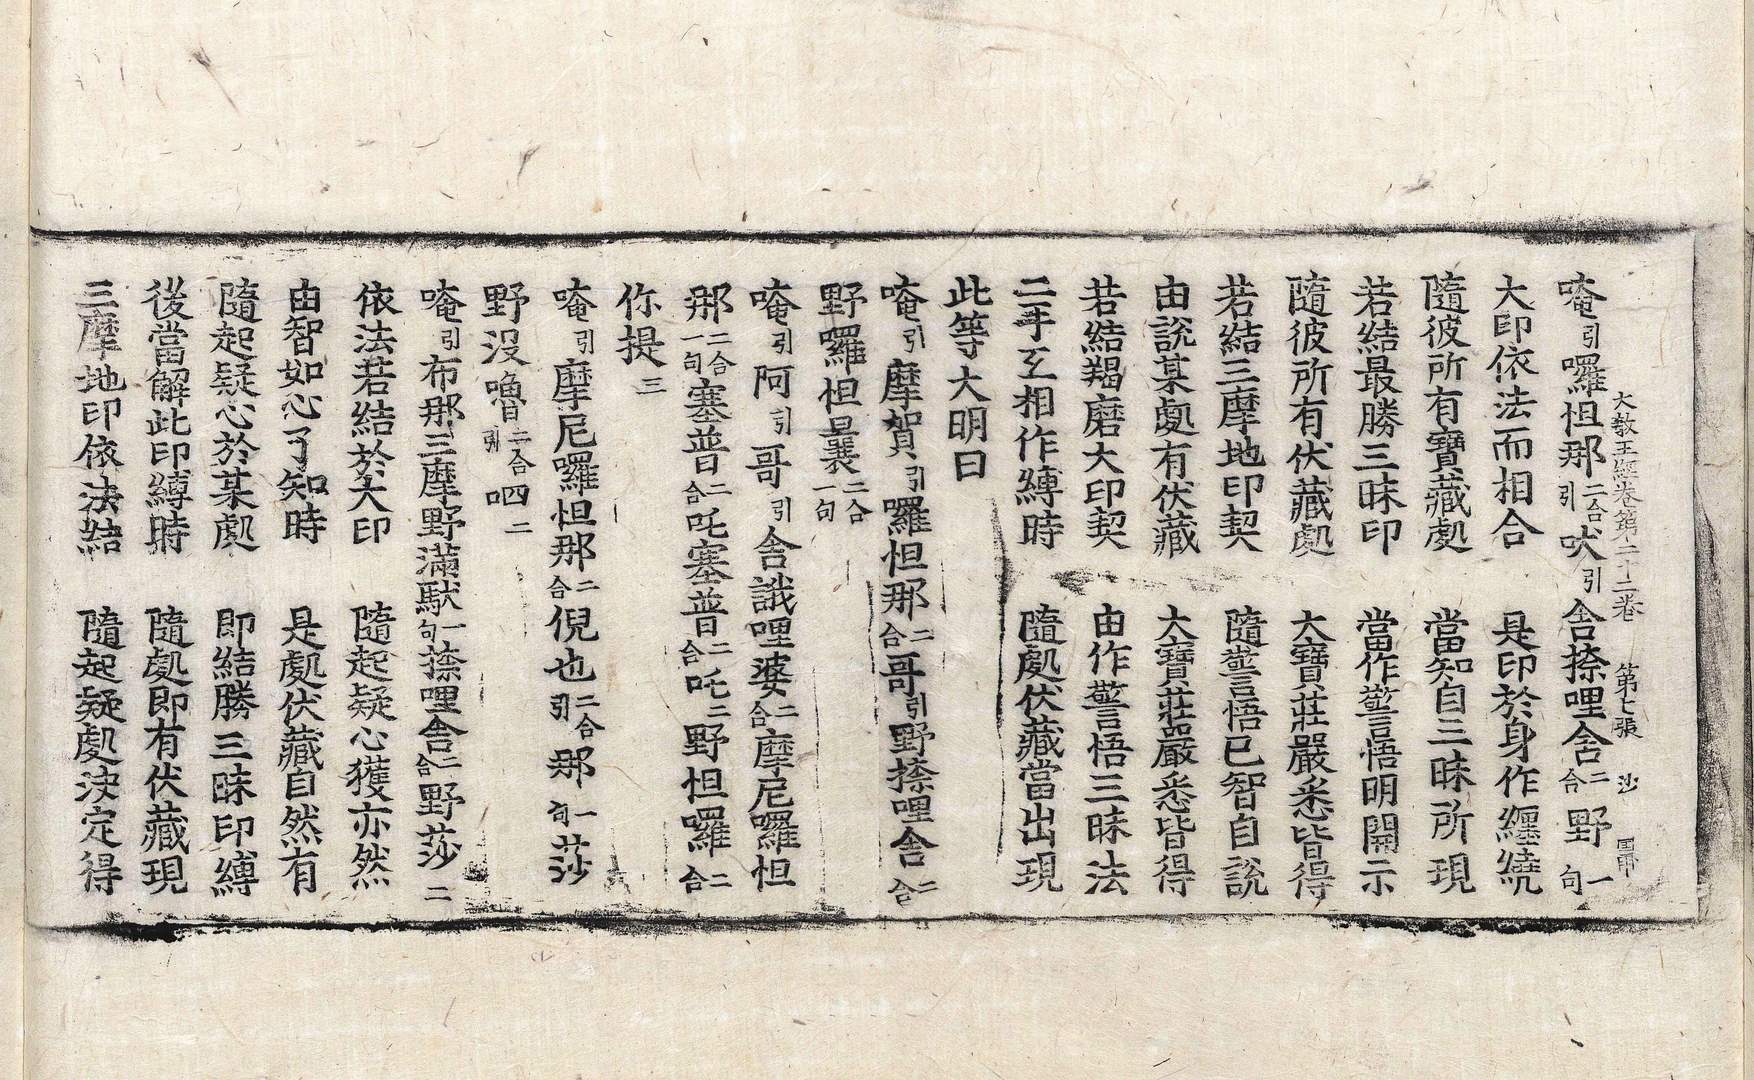 大教王經卷第二十二卷 第七張 沙
唵引囉怛那二合引吠引舍捺哩舍二合野一句
大印依法而相合 是印於身作纏繞
隨彼所有寶藏處 當知自三昧所現
若結最勝三昧印 當作警悟明開示
隨彼所有伏藏處 大寶莊嚴悉皆得
若結三摩地印契 隨警悟已智自說
由說某處有伏藏 大寶莊嚴悉皆得
若結羯磨大印契 由作警悟三昧法
二手互相作縛時 隨處伏藏當出現
此等大明曰
唵引摩賀引囉怛那二合哥引野捺哩舍二合
野囉怛曩二合一句
唵引阿引哥引舍誐哩婆二合摩尼囉怛
那二合一句塞普二合吒塞普二合吒二野怛囉二合
你提三
唵引摩尼囉怛那二合倪也二合引那一句莎
野没嚕二合引呬二
唵引布那三摩野滿馱一句捺哩舍二合野莎二
依法若結於大印 隨起疑心獲亦然
由智如心了知時 是處伏藏自然有
隨起疑心於某處 即結勝三昧印縛
後當解此印縛時 隨處即有伏藏現
三摩地印依法結 隨起疑處決定得